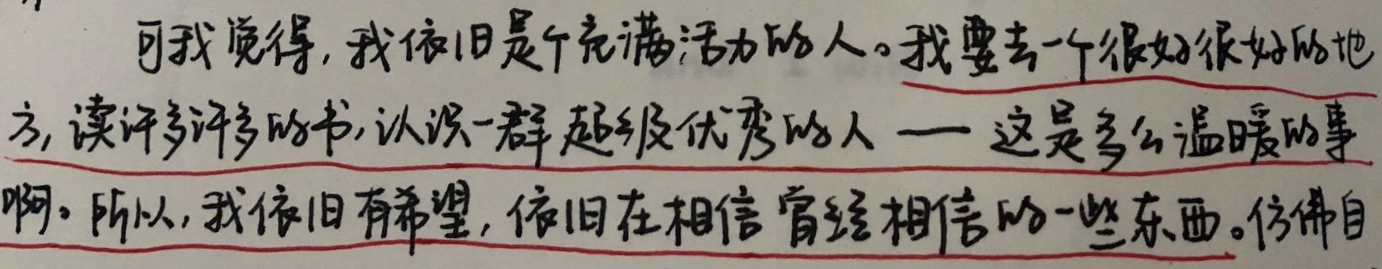 可我觉得,我依旧是个充满活力的人。我要去一个很好很好的地
方,读许多许多的书,认识一群超级优秀的人——这是多么温暖的事
啊。所以,我依旧有希望,依旧在相信曾经相信的一些东西。仿佛自